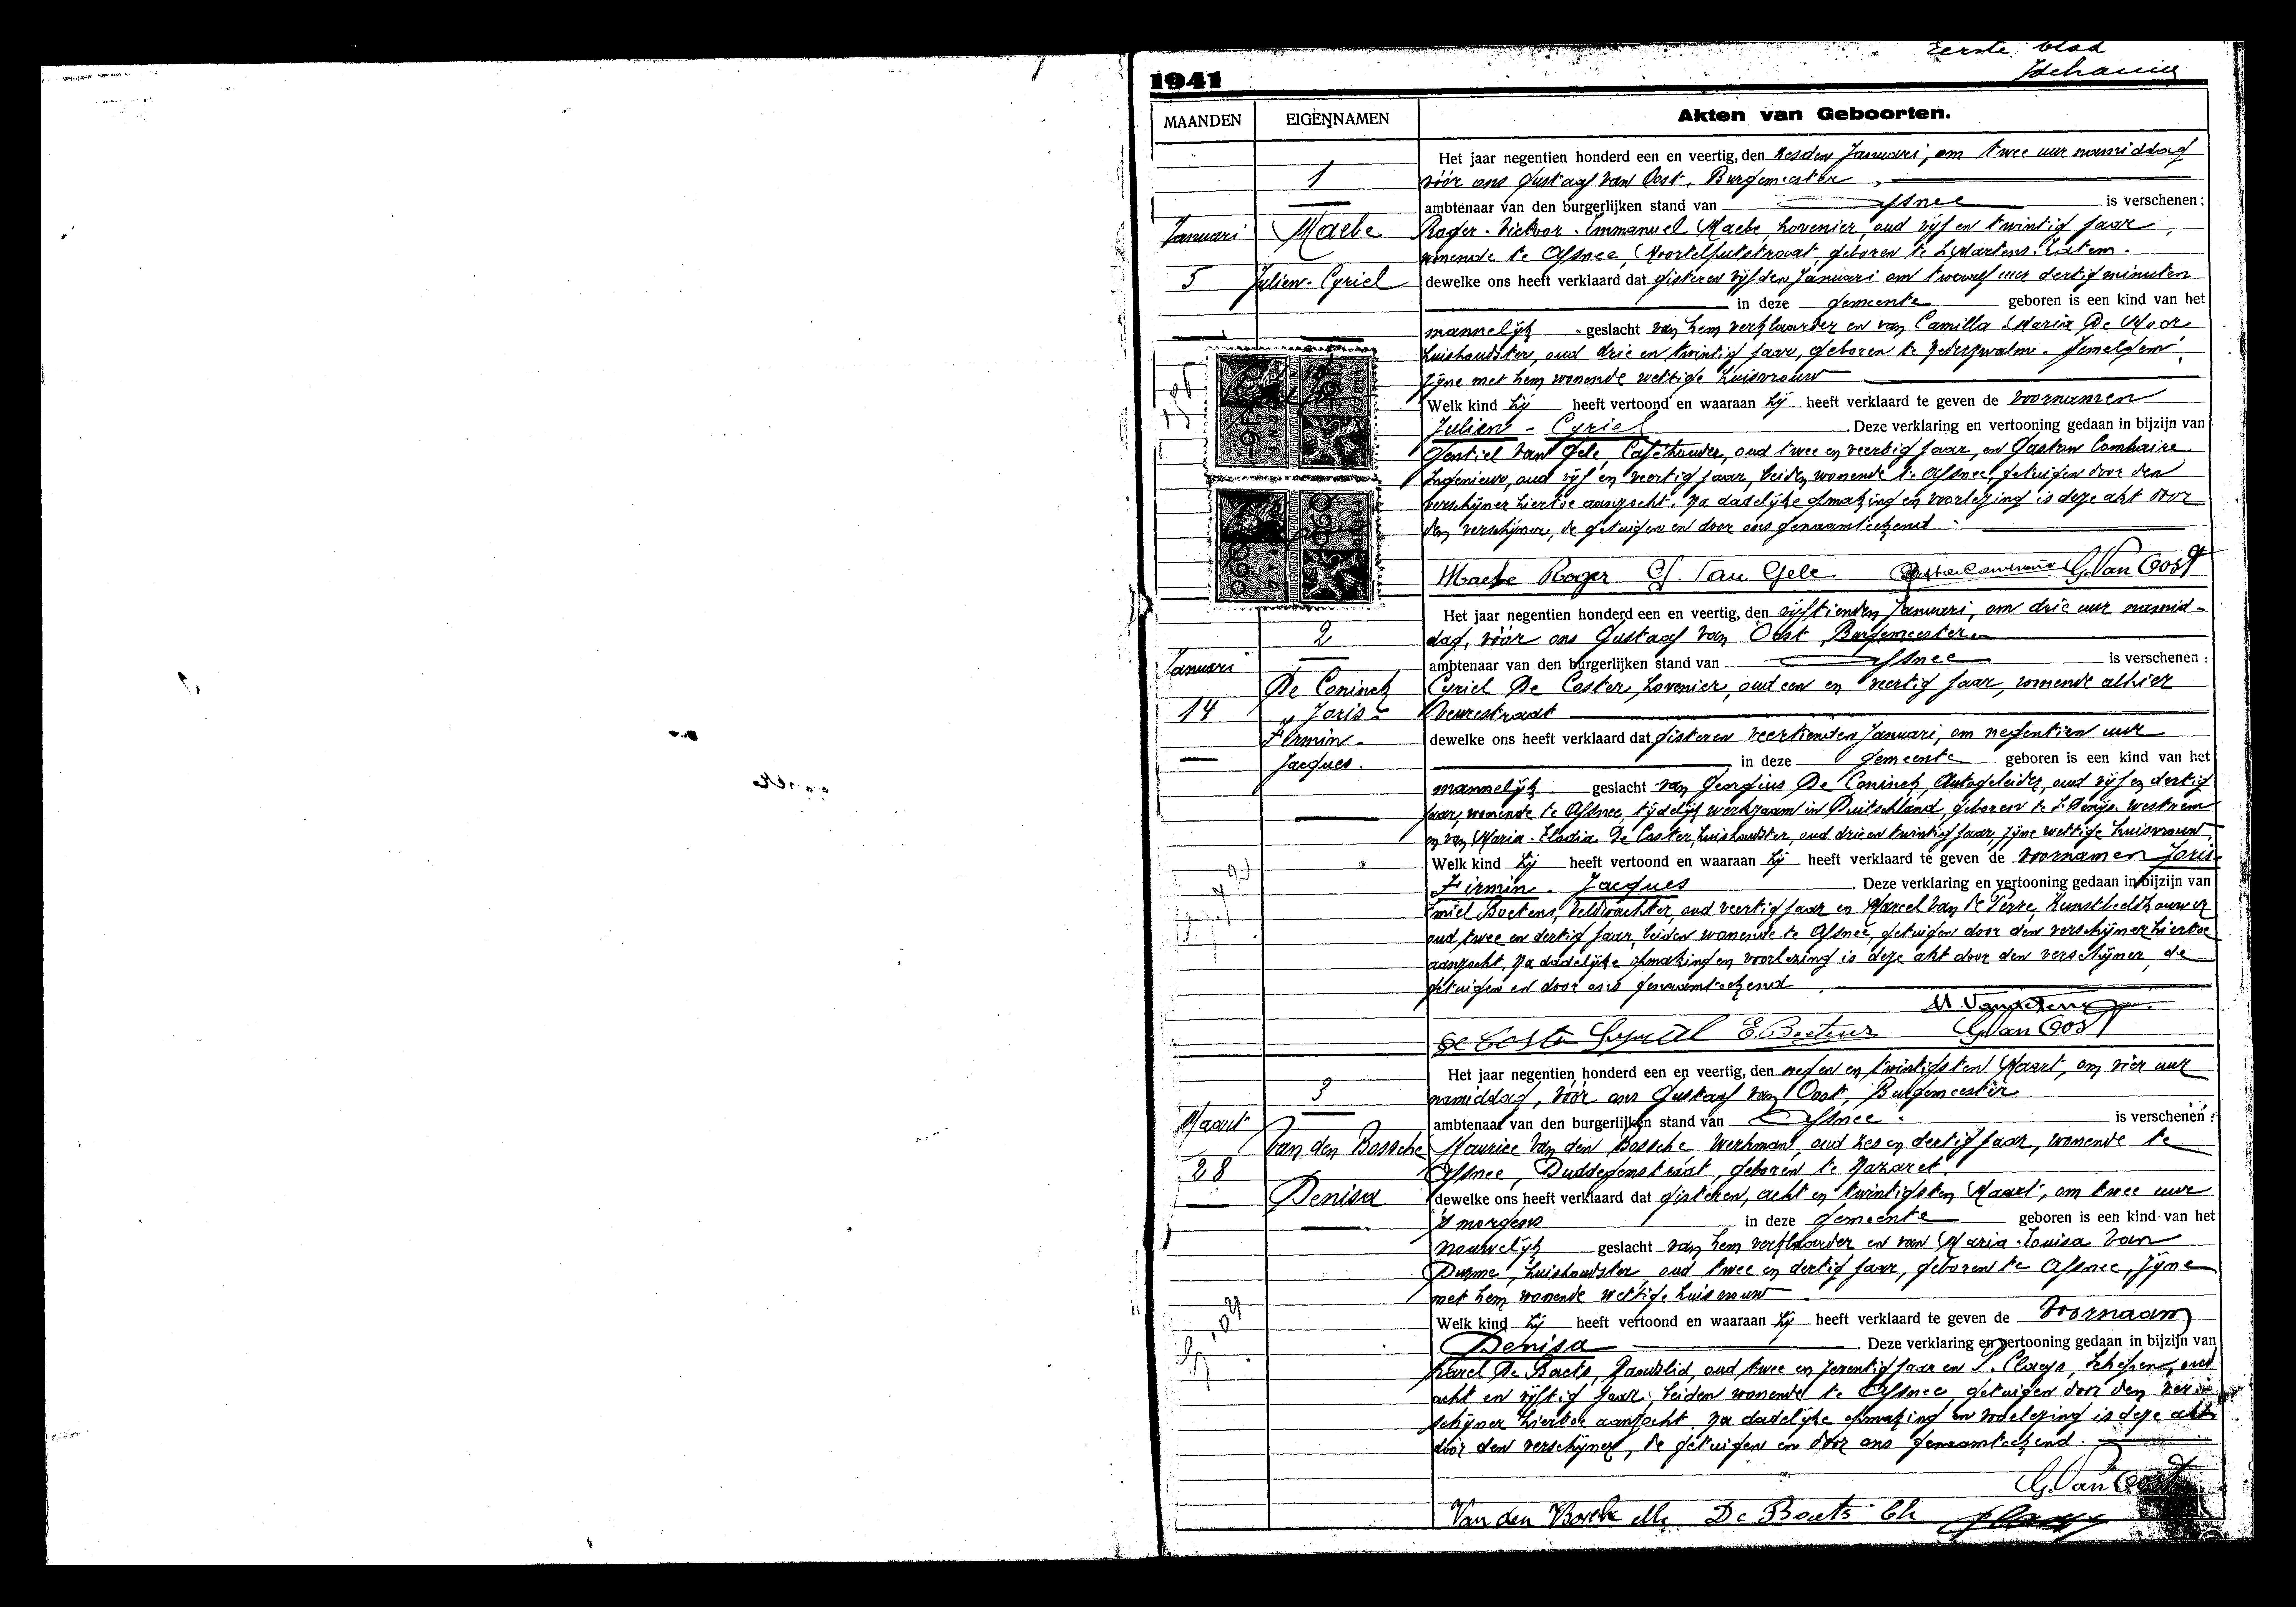 Eerste blad
1941
MAANDEN
EIGENNAMEN
Akten van Geboorten.
1
Januari
Maebe
5
Julien-Cyriel
Het jaar negentien honderd een en veertig, den zesden Januari, om twee uur namiddag
vóór ons Gustaaf Van Oost, Burgemeester,
ambtenaar van den burgerlijken stand van Afsnee is verschenen:
Roger-Victor-Emmanuel Maebe, hovenier, oud vijf en twintig jaar,
wonende te Afsnee, geboren te St Martens-Latem.
dewelke ons heeft verklaard dat gisteren vijfden Januari om twaalf uur dertig minuten
in deze gemeente geboren is een kind van het
mannelijk geslacht van hem verklaarder en van Camilla-Maria De Moor
huishoudster, oud drie en twintig jaar, geboren te Nederzwalm-
zijne met hem wonende wettige huisvrouw
Welk kind hij heeft vertoond en waaraan hij heeft verklaard te geven de voornamen
Julien-Cyriel. Deze verklaring en vertooning gedaan in bijzijn van
Gentiel Van Gele, Caféhouder, oud twee en veertig jaar, en Gaston Comhaire
Ingenieur, oud vijf en veertig jaar, beiden wonende te Afsnee, getuigen door den
verschijner hiertoe aanzocht. Na dadelijke opmaking en voorlezing is deze akt door
den verschijner, de getuigen en door ons genaamteekend.
Maebe Roger G. Van Gele G. Van Oost
2
Januari
De Coninck
14
Joris-
Firmin-
Jacques.
Het jaar negentien honderd een en veertig, den vijftienden Januari, om drie uur namid-
dag, vóór ons Gustaaf Van Oost, Burgemeester
ambtenaar van den burgerlijken stand van Afsnee is verschenen:
Cyriel De Coster, hovenier, oud een en veertig jaar, wonende alhier
Veurestraat
dewelke ons heeft verklaard dat gisteren veertienden Januari, om negentien uur
in deze gemeente geboren is een kind van het
mannelijk geslacht van Georgius De Coninck, Autogeleider, oud vijf en dertig
jaar, wonende te Afsnee, tijdelijk werkzaam in Duitschland, geboren te St Denijs-Westrem
en van Maria-Elodia De Coster, huishoudster, oud drie en twintig jaar, zijne wettige huisvrouw.
Welk kind hij heeft vertoond en waaraan hij heeft verklaard te geven de voornamen Joris-
Firmin-Jacques. Deze verklaring en vertooning gedaan in bijzijn van
Emiel Boetens, veldwachter, oud veertig jaar en Marcel Van de Perre, Kunstbeeldhouwer
oud twee en dertig jaar, beiden wonende te Afsnee, getuigen door den verschijner hiertoe
aanzocht. Na dadelijke opmaking en voorlezing is deze akt door den verschijner, de
getuigen en door ons genaamteekend.
De Coster Cyriel G. Van Oost
3
Maart
Van den Bossche
28
Denisa
Het jaar negentien honderd een en veertig, den negen en twintigsten Maart, om vier uur
namiddag, vóór ons Gustaaf Van Oost, Burgemeester
ambtenaar van den burgerlijken stand van Afsnee is verschenen:
Maurice Van den Bossche werkman, oud zes en dertig jaar, wonende te
Afsnee, geboren te Nazaret.
dewelke ons heeft verklaard dat gisteren, acht en twintigsten Maart, om twee uur
's morgens in deze gemeente geboren is een kind van het
vrouwelijk geslacht van hem verklaarder en van Maria-Louisa Van
Durme, huishoudster, oud twee en dertig jaar, geboren te Afsnee, zijne
met hem wonende wettige huisvrouw
Welk kind hij heeft vertoond en waaraan hij heeft verklaard te geven de voornaam
Denisa. Deze verklaring en vertooning gedaan in bijzijn van
Karel De Baets, Raadslid, oud twee en zeventig jaar en P. Claeys, Schepen, oud
acht en vijftig jaar, beiden wonende te Afsnee, getuigen door den ver-
schijner hiertoe aanzocht. Na dadelijke opmaking en voorlezing is deze akt
door den verschijner, de getuigen en door ons genaamteekend.
G. Van Oost
Van den Bossche De Baets Ch